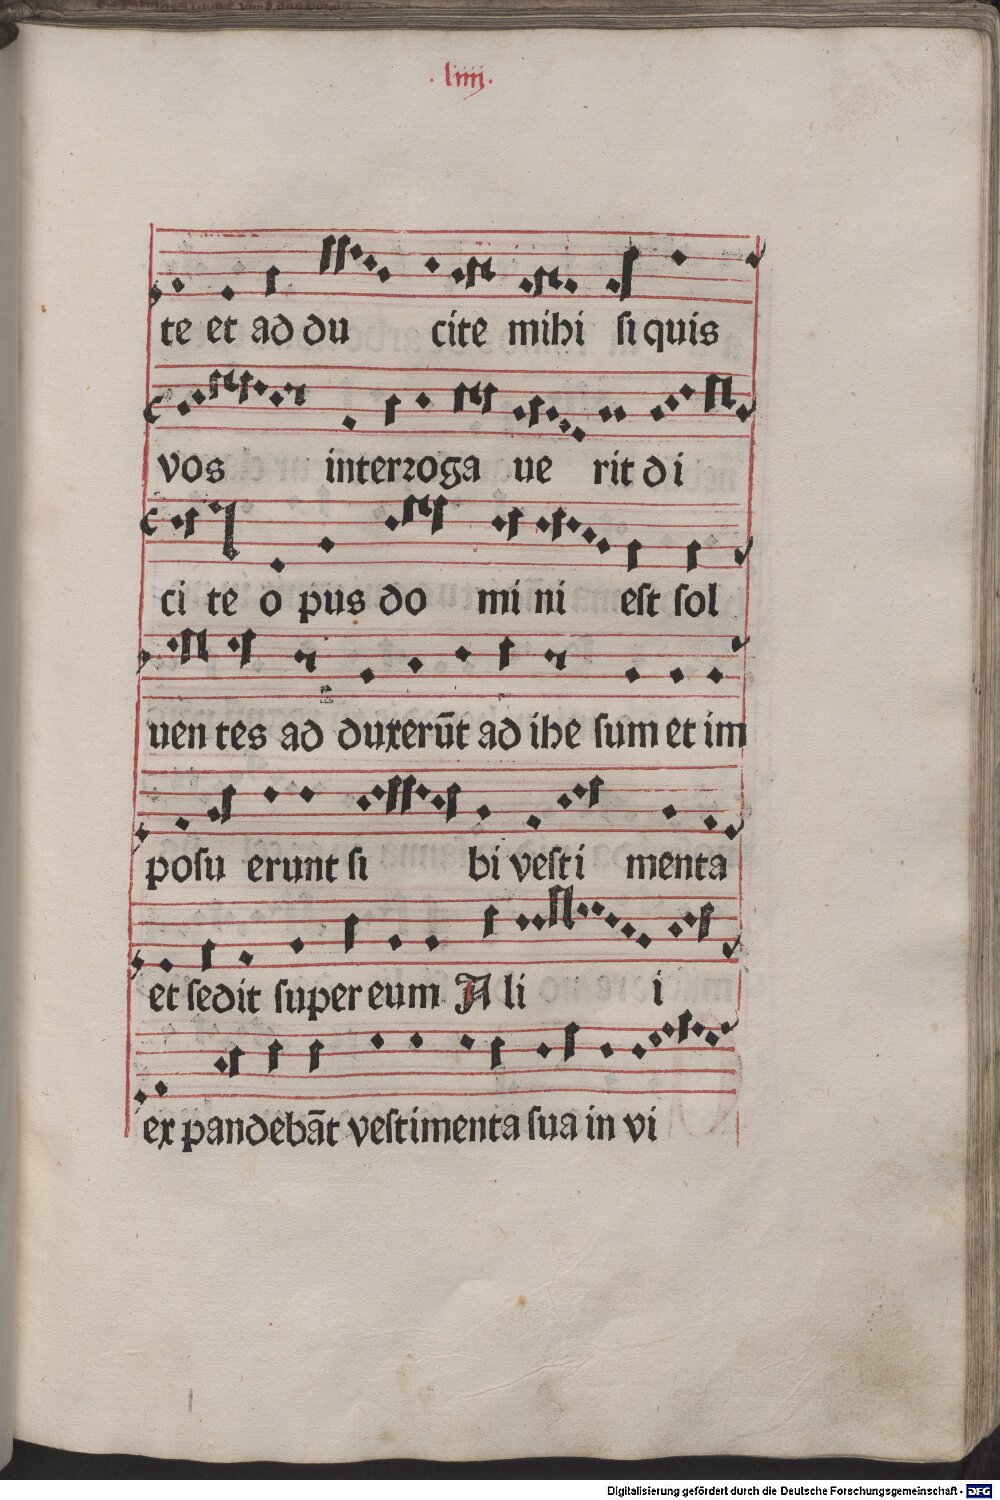 · liiij ·
te et ad du cite mihi si quis
vos interroga ue rit di
ci te o pus do mi ni est sol
uen tes ad duxerūt ad ihe sum et im
posu erunt si bi vesti menta
et sedit super eum A li i
ex pandebāt vestimenta sua in vi
Digitalisierung gefördert durch die Deutsche Forschungsgemeinschaft - DFG